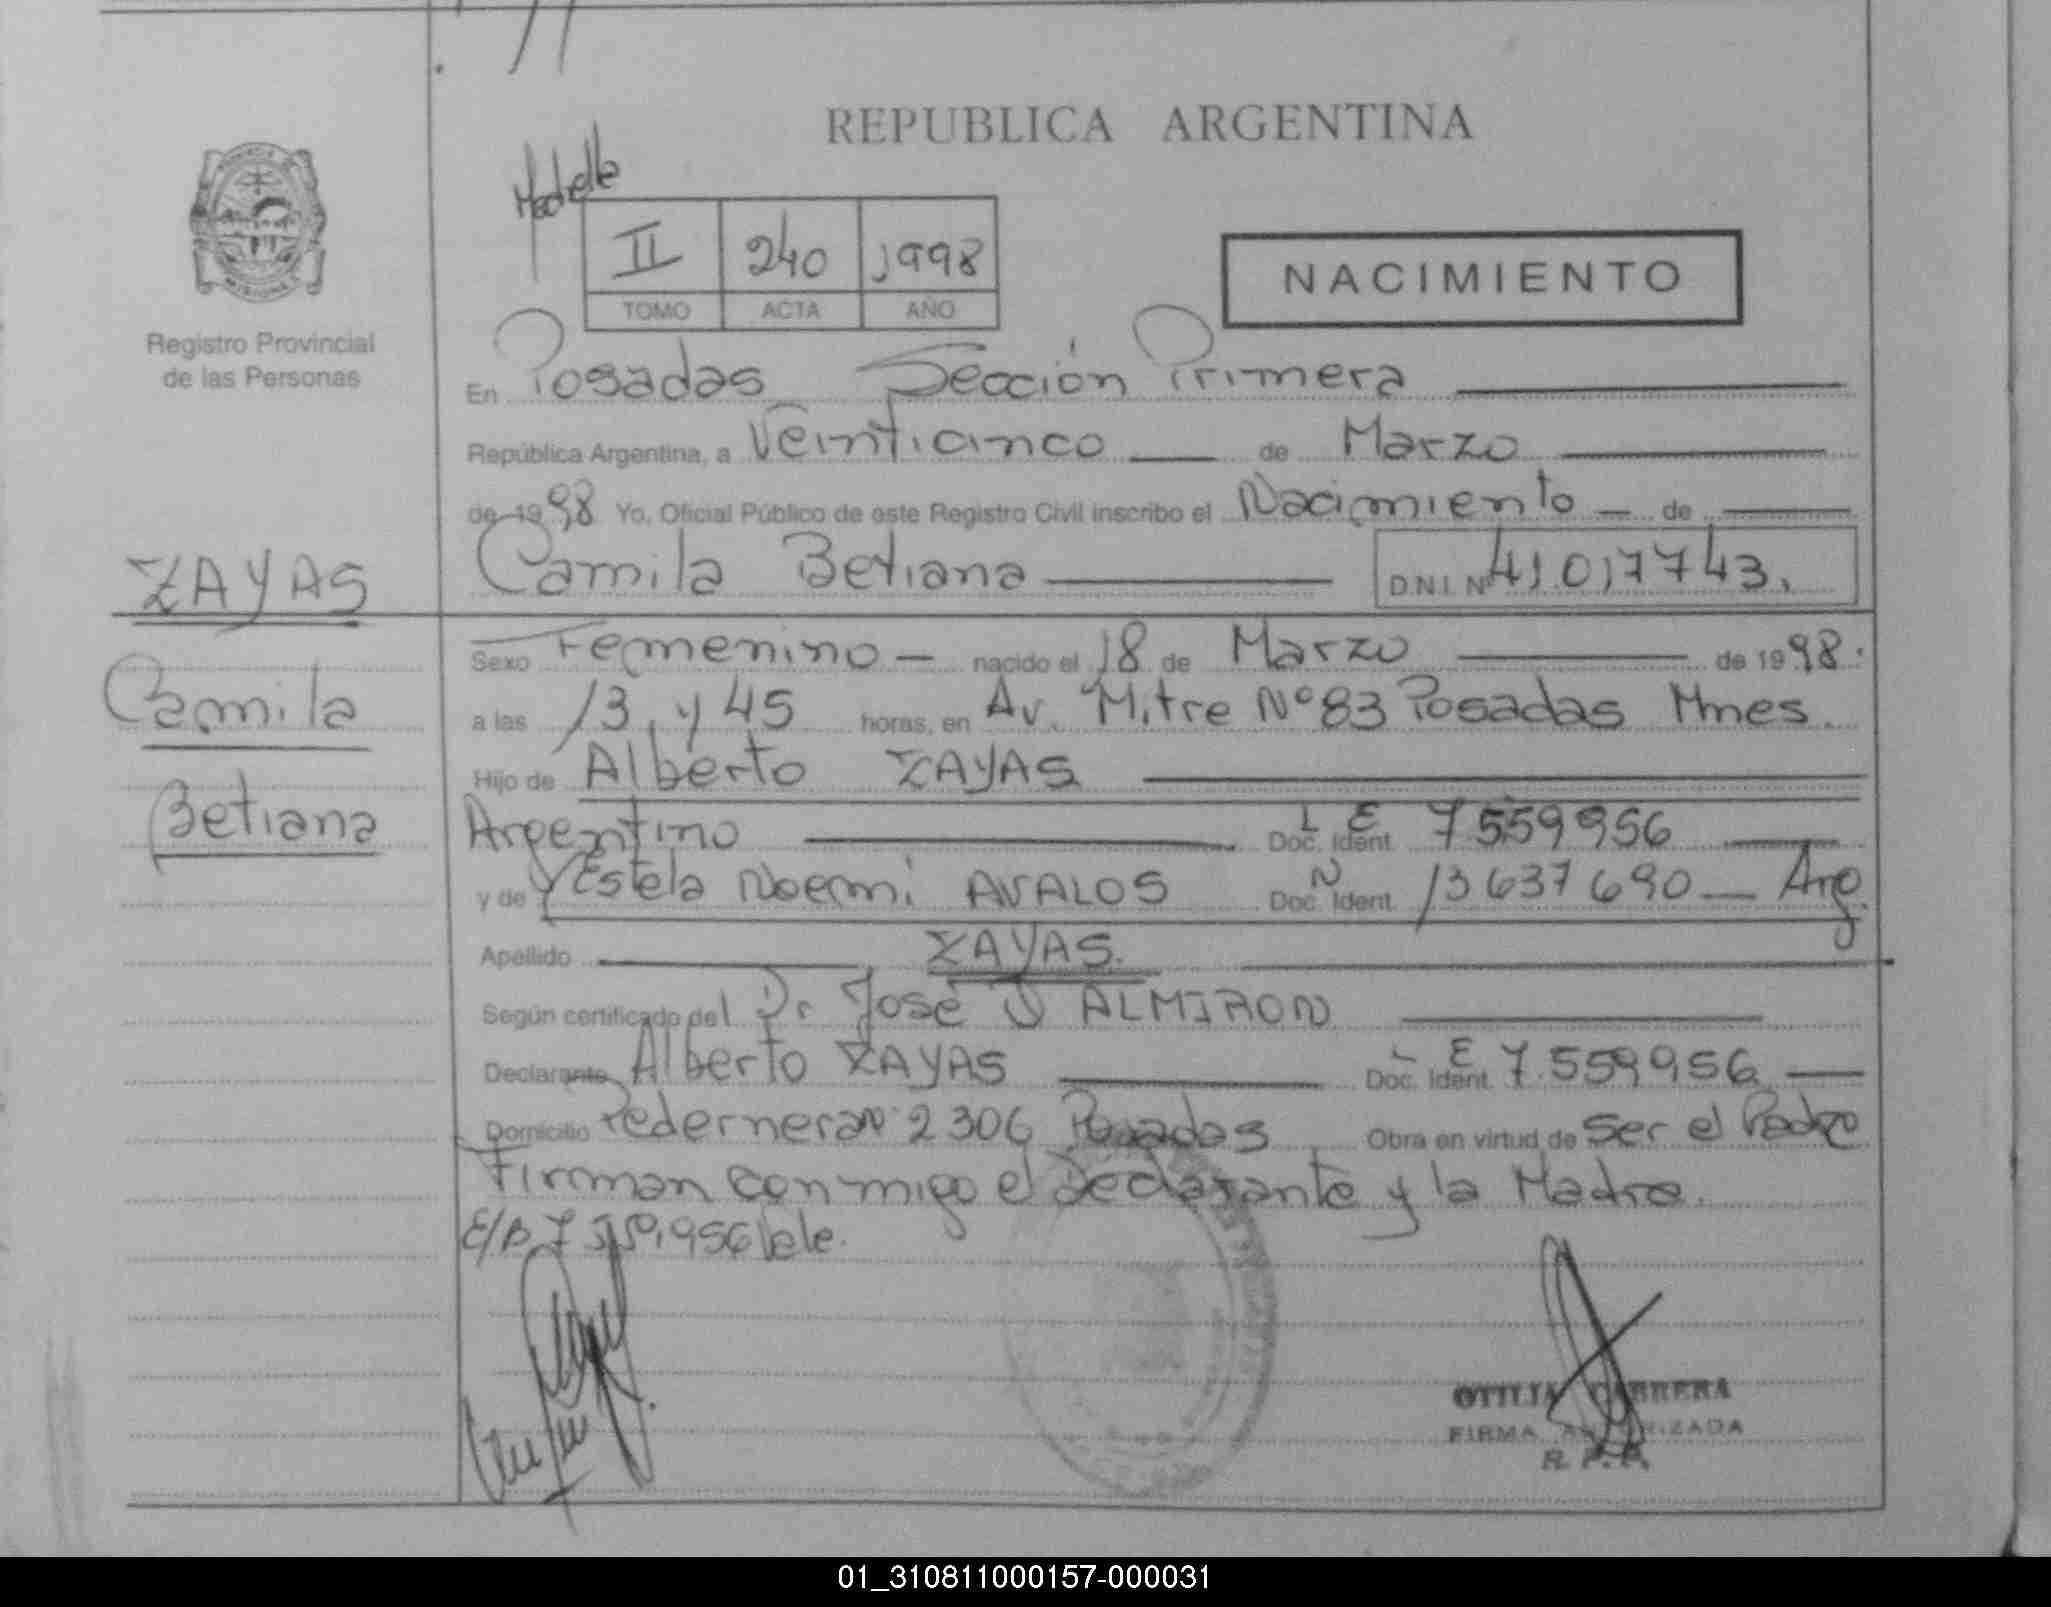 REPUBLICA ARGENTINA
II 240 1998
TOMO ACTA AÑO
NACIMIENTO
Registro Provincial
de las Personas
ZAYAS
Camila
Betiana
En Posadas Sección Primera
República Argentina, a Veinticinco de Marzo
de 1998 Yo, Oficial Público de este Registro Civil inscribo el Nacimiento de
Camila Betiana D.N.I. Nº 41.017743.
Sexo Femenino nacido el 18 de Marzo de 1998.
a las 13 y 45 horas, en Av. Mitre Nº 83 Posadas Mnes.
Hijo de Alberto ZAYAS
Argentino Doc. Ident. L E 7559956
y de Estela Noemi AVALOS Doc. Ident. N 13637690 Arg.
Apellido ZAYAS.
Según certificado del Dr José D ALMIRON
Declarante Alberto ZAYAS Doc. Ident. L E 7.559956
Domicilio Pedernera Nº 2306 Posadas Obra en virtud de Ser el Padre
Firman conmigo el Declarante y la Madre.
E/B 7559.956 Vale.
OTILIA CABRERA
FIRMA AUTORIZADA
R. P. P.
01_310811000157-000031